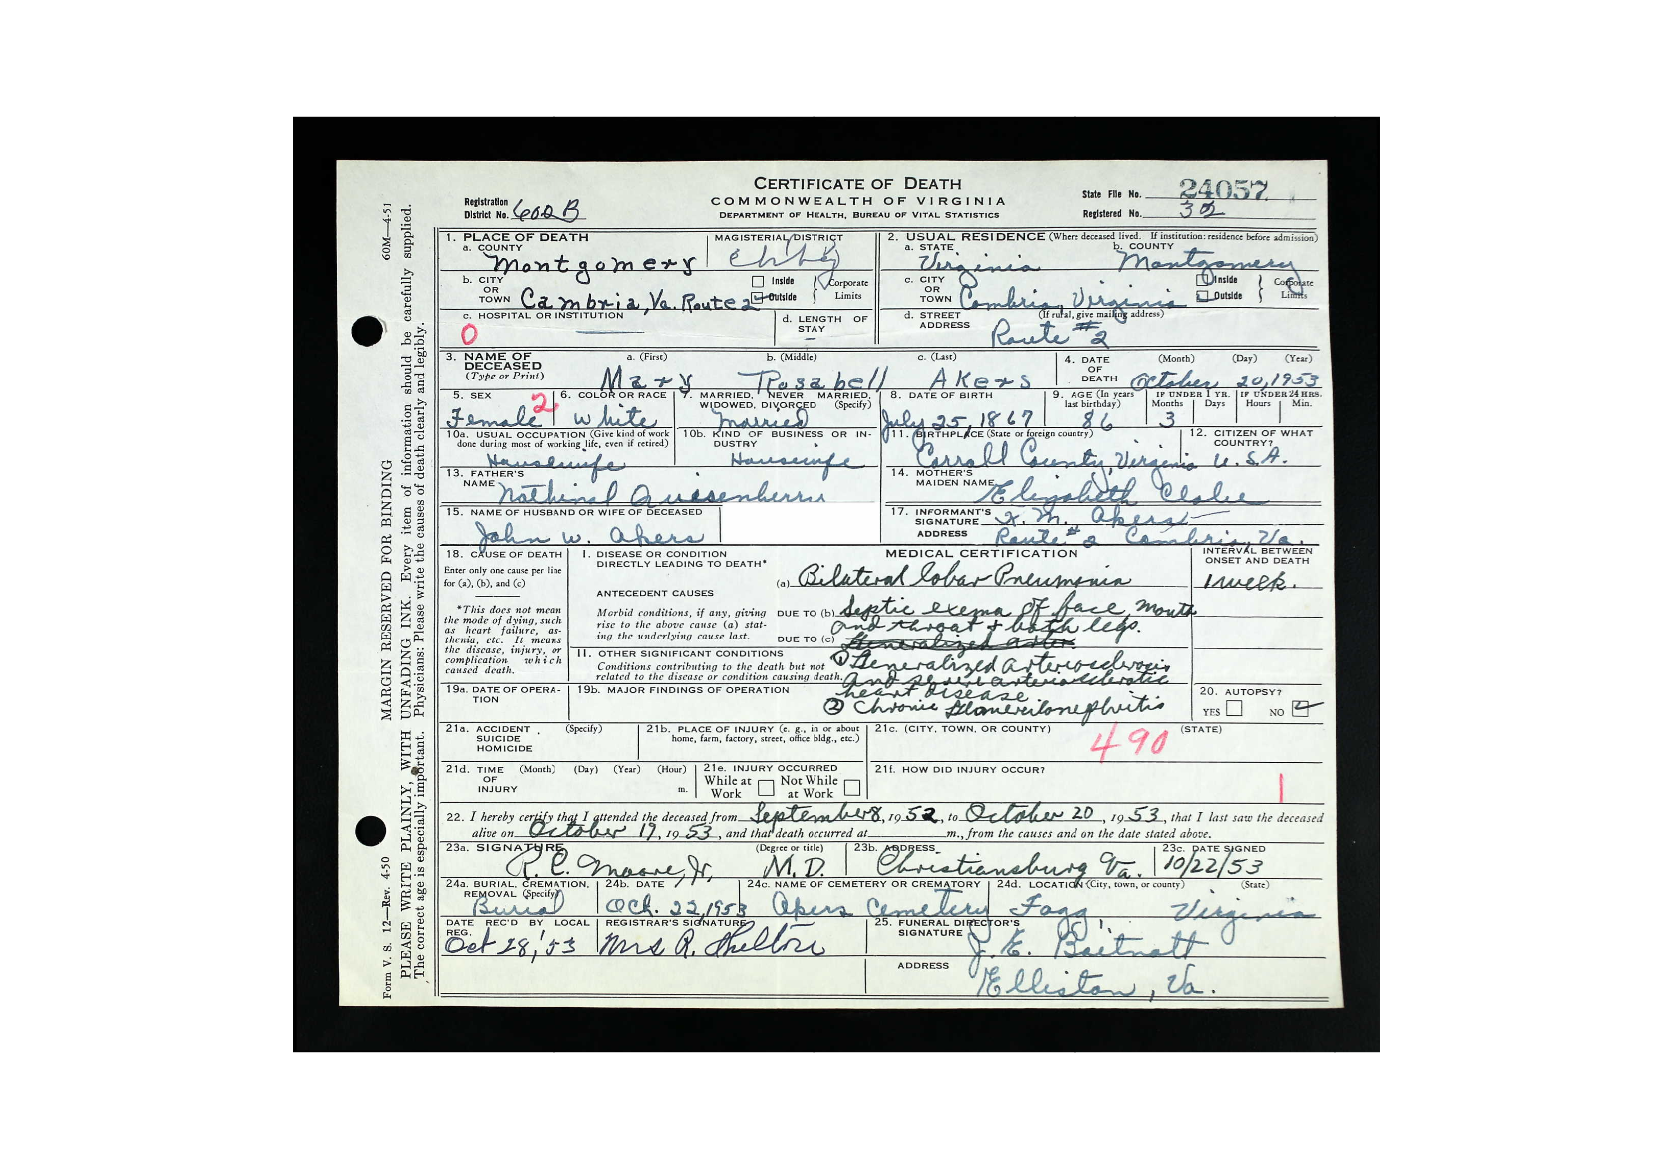 CERTIFICATE OF DEATH
COMMONWEALTH OF VIRGINIA
DEPARTMENT OF HEALTH, BUREAU OF VITAL STATISTICS
Registration District No. 602B
State File No. 24057
Registered No. 32
Form V. S. 12—Rev. 4-50 MARGIN RESERVED FOR BINDING 60M—4-51
PLEASE WRITE PLAINLY, WITH UNFADING INK. Every item of information should be carefully supplied.
The correct age is especially important. Physicians: Please write the causes of death clearly and legibly.
1. PLACE OF DEATH
a. COUNTY Montgomery
MAGISTERIAL DISTRICT
b. CITY OR TOWN Cambria, Va. Route 2
Inside Outside Corporate Limits
c. HOSPITAL OR INSTITUTION
0
d. LENGTH OF STAY –
2. USUAL RESIDENCE (Where deceased lived. If institution: residence before admission)
a. STATE Virginia
b. COUNTY Montgomery
c. CITY OR TOWN Cambria, Virginia
Inside Outside Corporate Limits
d. STREET ADDRESS (If rural, give mailing address) Route #2
3. NAME OF DECEASED (Type or Print)
a. (First) Mary b. (Middle) Rosabell c. (Last) Akers
4. DATE OF DEATH (Month) (Day) (Year) October 20, 1953
5. SEX Female 2
6. COLOR OR RACE White
7. MARRIED, NEVER MARRIED, WIDOWED, DIVORCED (Specify) Married
8. DATE OF BIRTH July 25, 1867
9. AGE (In years last birthday) 86
IF UNDER 1 YR. Months 3 Days
IF UNDER 24 HRS. Hours Min.
10a. USUAL OCCUPATION (Give kind of work done during most of working life, even if retired) Housewife
10b. KIND OF BUSINESS OR INDUSTRY Housewife
11. BIRTHPLACE (State or foreign country) Carroll County, Virginia
12. CITIZEN OF WHAT COUNTRY? U.S.A.
13. FATHER'S NAME Nathinal Quisenberru
14. MOTHER'S MAIDEN NAME Elizabeth
15. NAME OF HUSBAND OR WIFE OF DECEASED
John W. Akers
17. INFORMANT'S SIGNATURE M. Akers
ADDRESS Route #2 Cambria, Va.
18. CAUSE OF DEATH
Enter only one cause per line for (a), (b), and (c)
*This does not mean the mode of dying, such as heart failure, asthenia, etc. It means the disease, injury, or complication which caused death.
MEDICAL CERTIFICATION
I. DISEASE OR CONDITION DIRECTLY LEADING TO DEATH*
(a) Bilateral lobar Pneumonia
INTERVAL BETWEEN ONSET AND DEATH
1 week.
ANTECEDENT CAUSES
Morbid conditions, if any, giving rise to the above cause (a) stating the underlying cause last.
DUE TO (b) Septic exema of face, mouth
and throat & both legs.
DUE TO (c) Generalized
II. OTHER SIGNIFICANT CONDITIONS
Conditions contributing to the death but not related to the disease or condition causing death.
① Generalized arteriosclerosis
and severe arteriosclerotic
heart disease
② Chronic glomerulonephritis
19a. DATE OF OPERATION
19b. MAJOR FINDINGS OF OPERATION
20. AUTOPSY?
YES NO
21a. ACCIDENT SUICIDE HOMICIDE (Specify)
21b. PLACE OF INJURY (e. g., in or about home, farm, factory, street, office bldg., etc.)
21c. (CITY, TOWN, OR COUNTY) (STATE)
490
21d. TIME OF INJURY (Month) (Day) (Year) (Hour) m.
21e. INJURY OCCURRED
While at Work Not While at Work
21f. HOW DID INJURY OCCUR?
1
22. I hereby certify that I attended the deceased from September 8, 1952, to October 20, 1953, that I last saw the deceased
alive on October 19, 1953, and that death occurred at m., from the causes and on the date stated above.
23a. SIGNATURE (Degree or title) R. C. Moore, Jr, M.D.
23b. ADDRESS Christiansburg Va.
23c. DATE SIGNED 10/22/53
24a. BURIAL, CREMATION, REMOVAL (Specify) Burial
24b. DATE Oct. 22, 1953
24c. NAME OF CEMETERY OR CREMATORY Akers Cemetery
24d. LOCATION (City, town, or county) (State) Fagg, Virginia
DATE REC'D BY LOCAL REG. Oct 28, '53
REGISTRAR'S SIGNATURE Mrs R. Shelton
25. FUNERAL DIRECTOR'S SIGNATURE J. E. Boitnott
ADDRESS Elliston, Va.